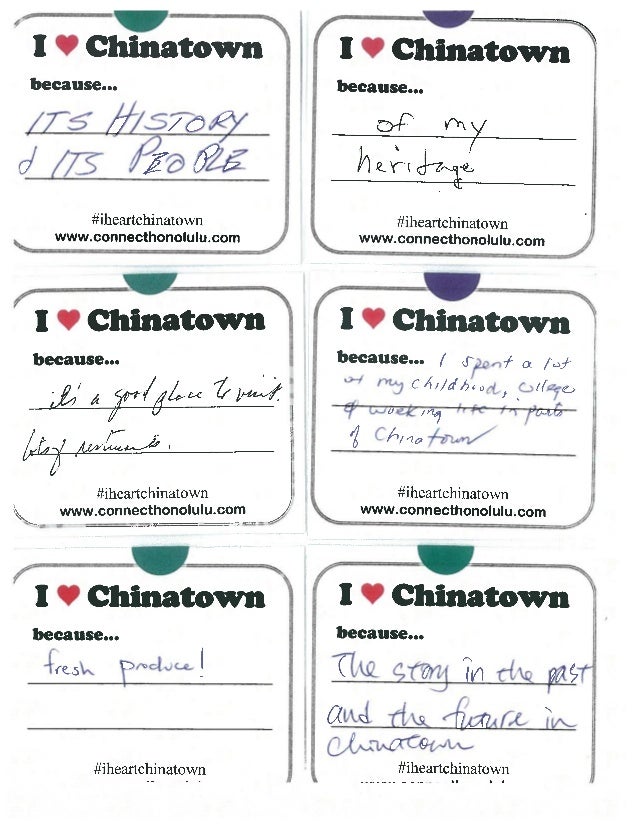 I ♥ Chinatown
because...
ITS HISTORY
& ITS PEOPLE
#iheartchinatown
www.connecthonolulu.com
I ♥ Chinatown
because...
of my
heritage
#iheartchinatown
www.connecthonolulu.com
I ♥ Chinatown
because...
it's a good place to visit.
lots of restaurants.
#iheartchinatown
www.connecthonolulu.com
I ♥ Chinatown
because... I spent a lot
of my childhood, college
& working life in parts
of Chinatown
#iheartchinatown
www.connecthonolulu.com
I ♥ Chinatown
because...
fresh produce!
#iheartchinatown
I ♥ Chinatown
because...
The story in the past
and the future in
Chinatown
#iheartchinatown